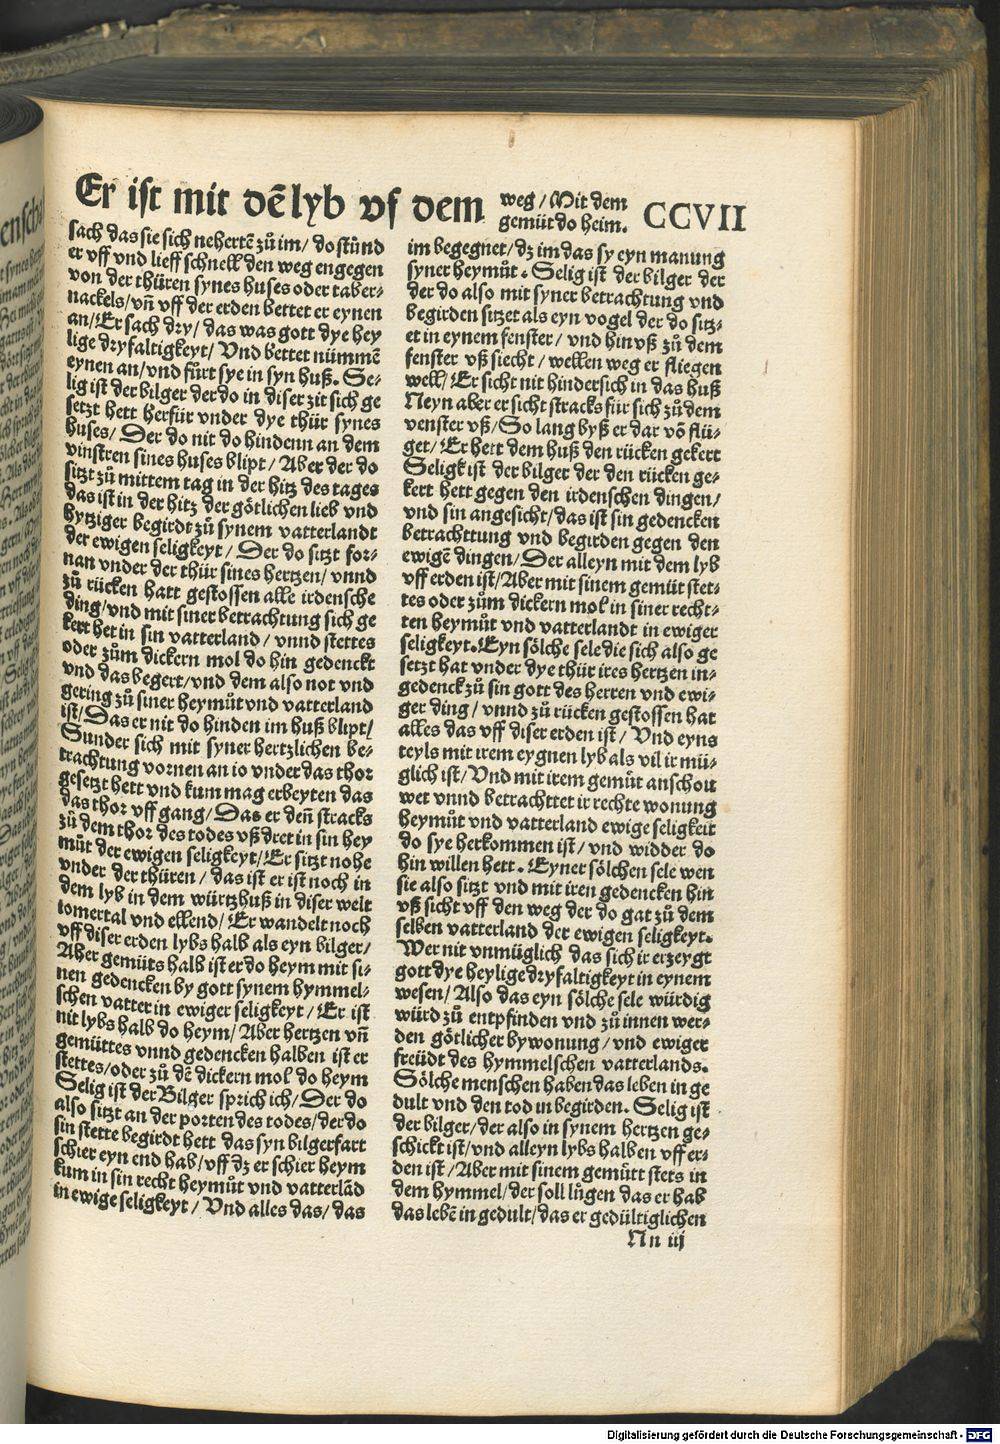 Er ist mit dē lyb vf dem weg / Mit dem
gemüt do heim. CCVII
sach das sie sich nehertē zů im / do stůnd
er vff vnd lieff schnell den weg engegen
von der thüren synes huses oder taber-
nackels / vñ vff der erden bettet er eynen
an / Er sach dry / das was gott dye hey
lige dryfaltigkeyt / Vnd bettet nümmē
eynen an / vnd fůrt sye in syn huß. Se-
lig ist der bilger der do in diser zit sich ge
setzt hett herfür vnder dye thür synes
huses / Der do nit do hindenn an dem
vinstren sines huses blipt / Aber der do
sitzt zů mittem tag in der hitz des tages
das ist in der hitz der götlichen lieb vnd
hytziger begirdt zů synem vatterlandt
der ewigen seligkeyt / Der do sitzt for-
nan vnder der thür sines hertzen / vnnd
zů rücken hatt gestossen alle irdensche
ding / vnd mit siner betrachtung sich ge
kert het in sin vatterland / vnnd stettes
oder zům dickern mol do hin gedenckt
vnd das begert / vnd dem also not vnd
gering zů siner heymůt vnd vatterland
ist / Das er nit do hinden im huß blipt /
Sunder sich mit syner hertzlichen be-
trachtung vornen an io vnder das thor
gesetzt hett vnd kum mag erbeyten das
das thor vff gang / Das er deñ stracks
zů dem thor des todes vß dret in sin hey
můt der ewigen seligkeyt / Er sitzt nohe
vnder der thüren / das ist er ist noch in
dem lyb in dem würtzhuß in diser welt
iomertal vnd ellend / Er wandelt noch
vff diser erden lybs halb als eyn bilger /
Aber gemüts halb ist er do heym mit si-
nen gedencken by gott synem hymmel-
schen vatter in ewiger seligkeyt / Er ist
nit lybs halb do heym / Aber hertzen vñ
gemüttes vnnd gedencken halben ist er
stettes / oder zů dē dickern mol do heym
Selig ist der Bilger sprich ich / Der do
also sitzt an der porten des todes / der do
sin stette begirdt hett das syn bilgerfart
schier eyn end hab / vff dz er schier heym
kum in sin recht heymůt vnd vatterlād
in ewige seligkeyt / Vnd alles das / das
im begegnet / dz im das sy eyn manung
syner heymůt. Selig ist der bilger der
der do also mit syner betrachtung vnd
begirden sitzet als eyn vogel der do sitz-
et in eynem fenster / vnd hin vß zů dem
fenster vß siecht / wellen weg er fliegen
well / Er sicht nit hindersich in das huß
Neyn aber er sicht stracks für sich zů dem
venster vß / So lang byß er dar vō flü-
get / Er hett dem huß den rücken gekert
Seligk ist der bilger der den rücken ge-
kert hett gegen den irdenschen dingen /
vnd sin angesicht / das ist sin gedencken
betrachttung vnd begirden gegen den
ewigē dingen / Der alleyn mit dem lyb
vff erden ist / Aber mit sinem gemüt stet-
tes oder zům dickern mol in siner rech-
ten heymůt vnd vatterlandt in ewiger
seligkeyt. Eyn sölche sele die sich also ge
setzt hat vnder dye thür ires hertzen in-
gedenck zů sin gott des herren vnd ewi-
ger ding / vnnd zů rücken gestossen hat
alles das vff diser erden ist / Vnd eyns
teyls mit irem eygnen lyb als vil ir mü-
glich ist / Vnd mit irem gemůt anschou
wet vnnd betrachttet ir rechte wonung
heymůt vnd vatterland ewige seligkeit
do sye herkommen ist / vnd widder do
hin willen hett. Eyner sölchen sele wen
sie also sitzt vnd mit iren gedencken hin
vß sicht vff den weg der do gat zů dem
selben vatterland der ewigen seligkeyt.
Wer nit vnmüglich das sich ir erzeygt
gott dye heylige dryfaltigkeyt in eynem
wesen / Also das eyn sölche sele würdig
würd zů entpfinden vnd zů innen wer-
den götlicher bywonung / vnd ewiger
freüdt des hymmelschen vatterlands.
Sölche menschen haben das leben in ge
dult vnd den tod in begirden. Selig ist
der bilger / der also in synem hertzen ge-
schickt ist / vnd alleyn lybs halben vff er-
den ist / Aber mit sinem gemůtt stets in
dem hymmel / der soll lůgen das er hab
das lebē in gedult / das er gedültiglichen
Nn iij
Digitalisierung gefördert durch die Deutsche Forschungsgemeinschaft - DFG